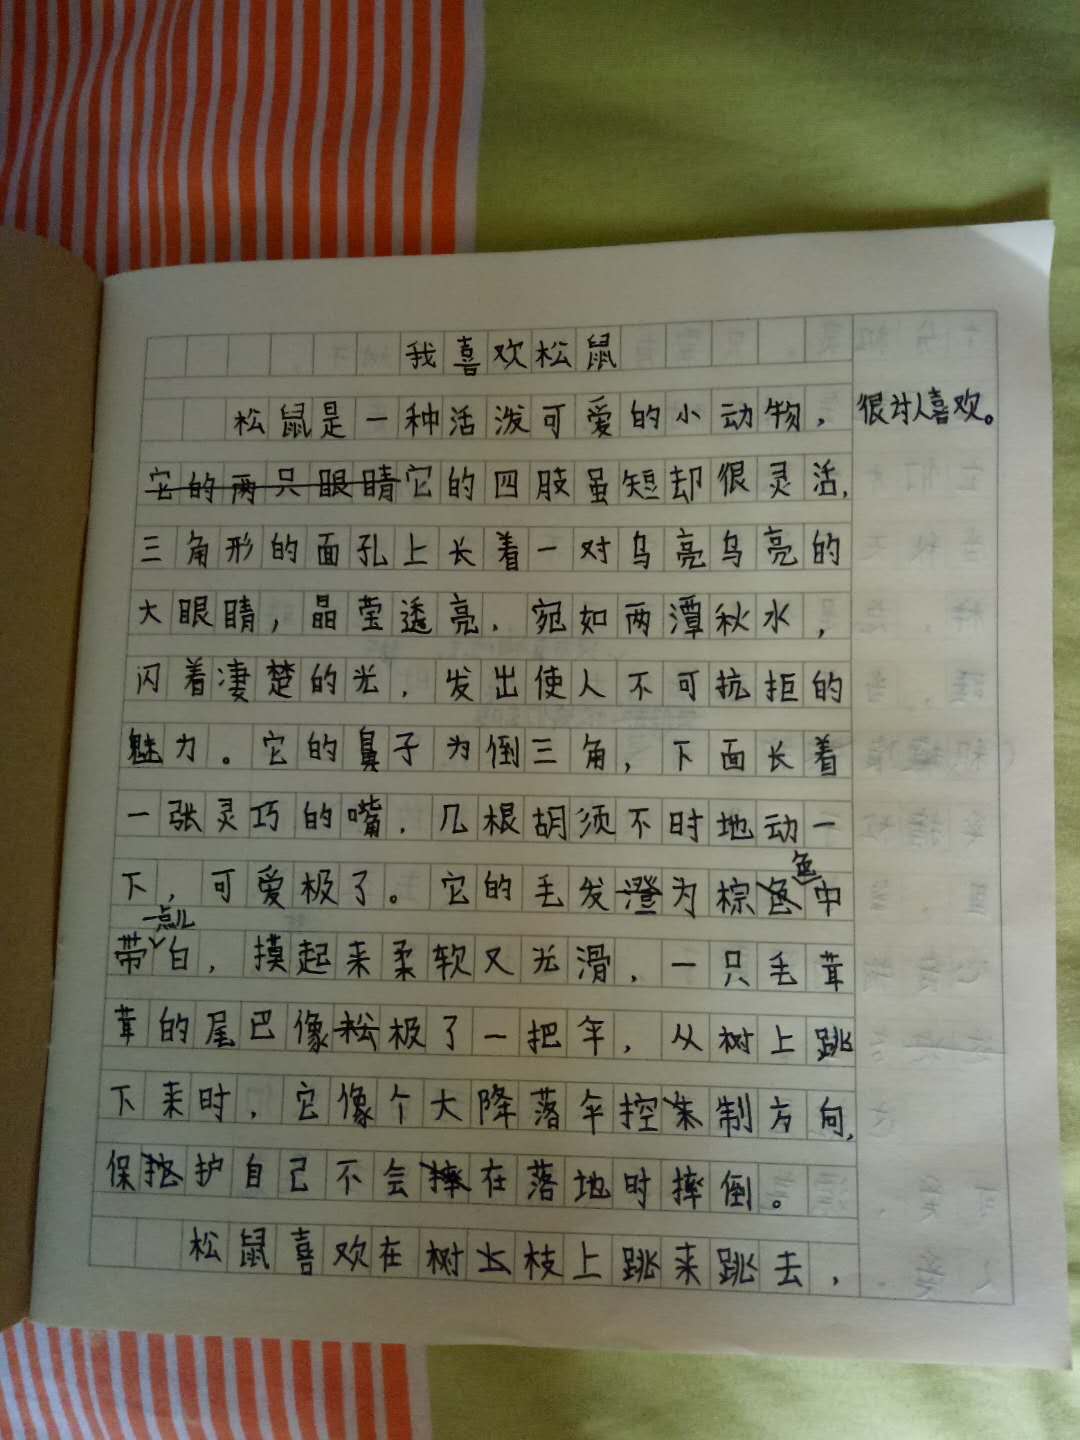 我喜欢松鼠
松鼠是一种活泼可爱的小动物，很讨人喜欢。
它的两只眼睛它的四肢虽短却很灵活，
三角形的面孔上长着一对乌亮乌亮的
大眼睛，晶莹透亮，宛如两潭秋水，
闪着凄楚的光，发出使人不可抗拒的
魅力。它的鼻子为倒三角，下面长着
一张灵巧的嘴，几根胡须不时地动一
下，可爱极了。它的毛发澄为棕色中
色
一点儿
带白，摸起来柔软又光滑，一只毛茸
茸的尾巴像松极了一把伞，从树上跳
下来时，它像个大降落伞控制方向，
保护自己不会摔在落地时摔倒。
松鼠喜欢在树上枝上跳来跳去，